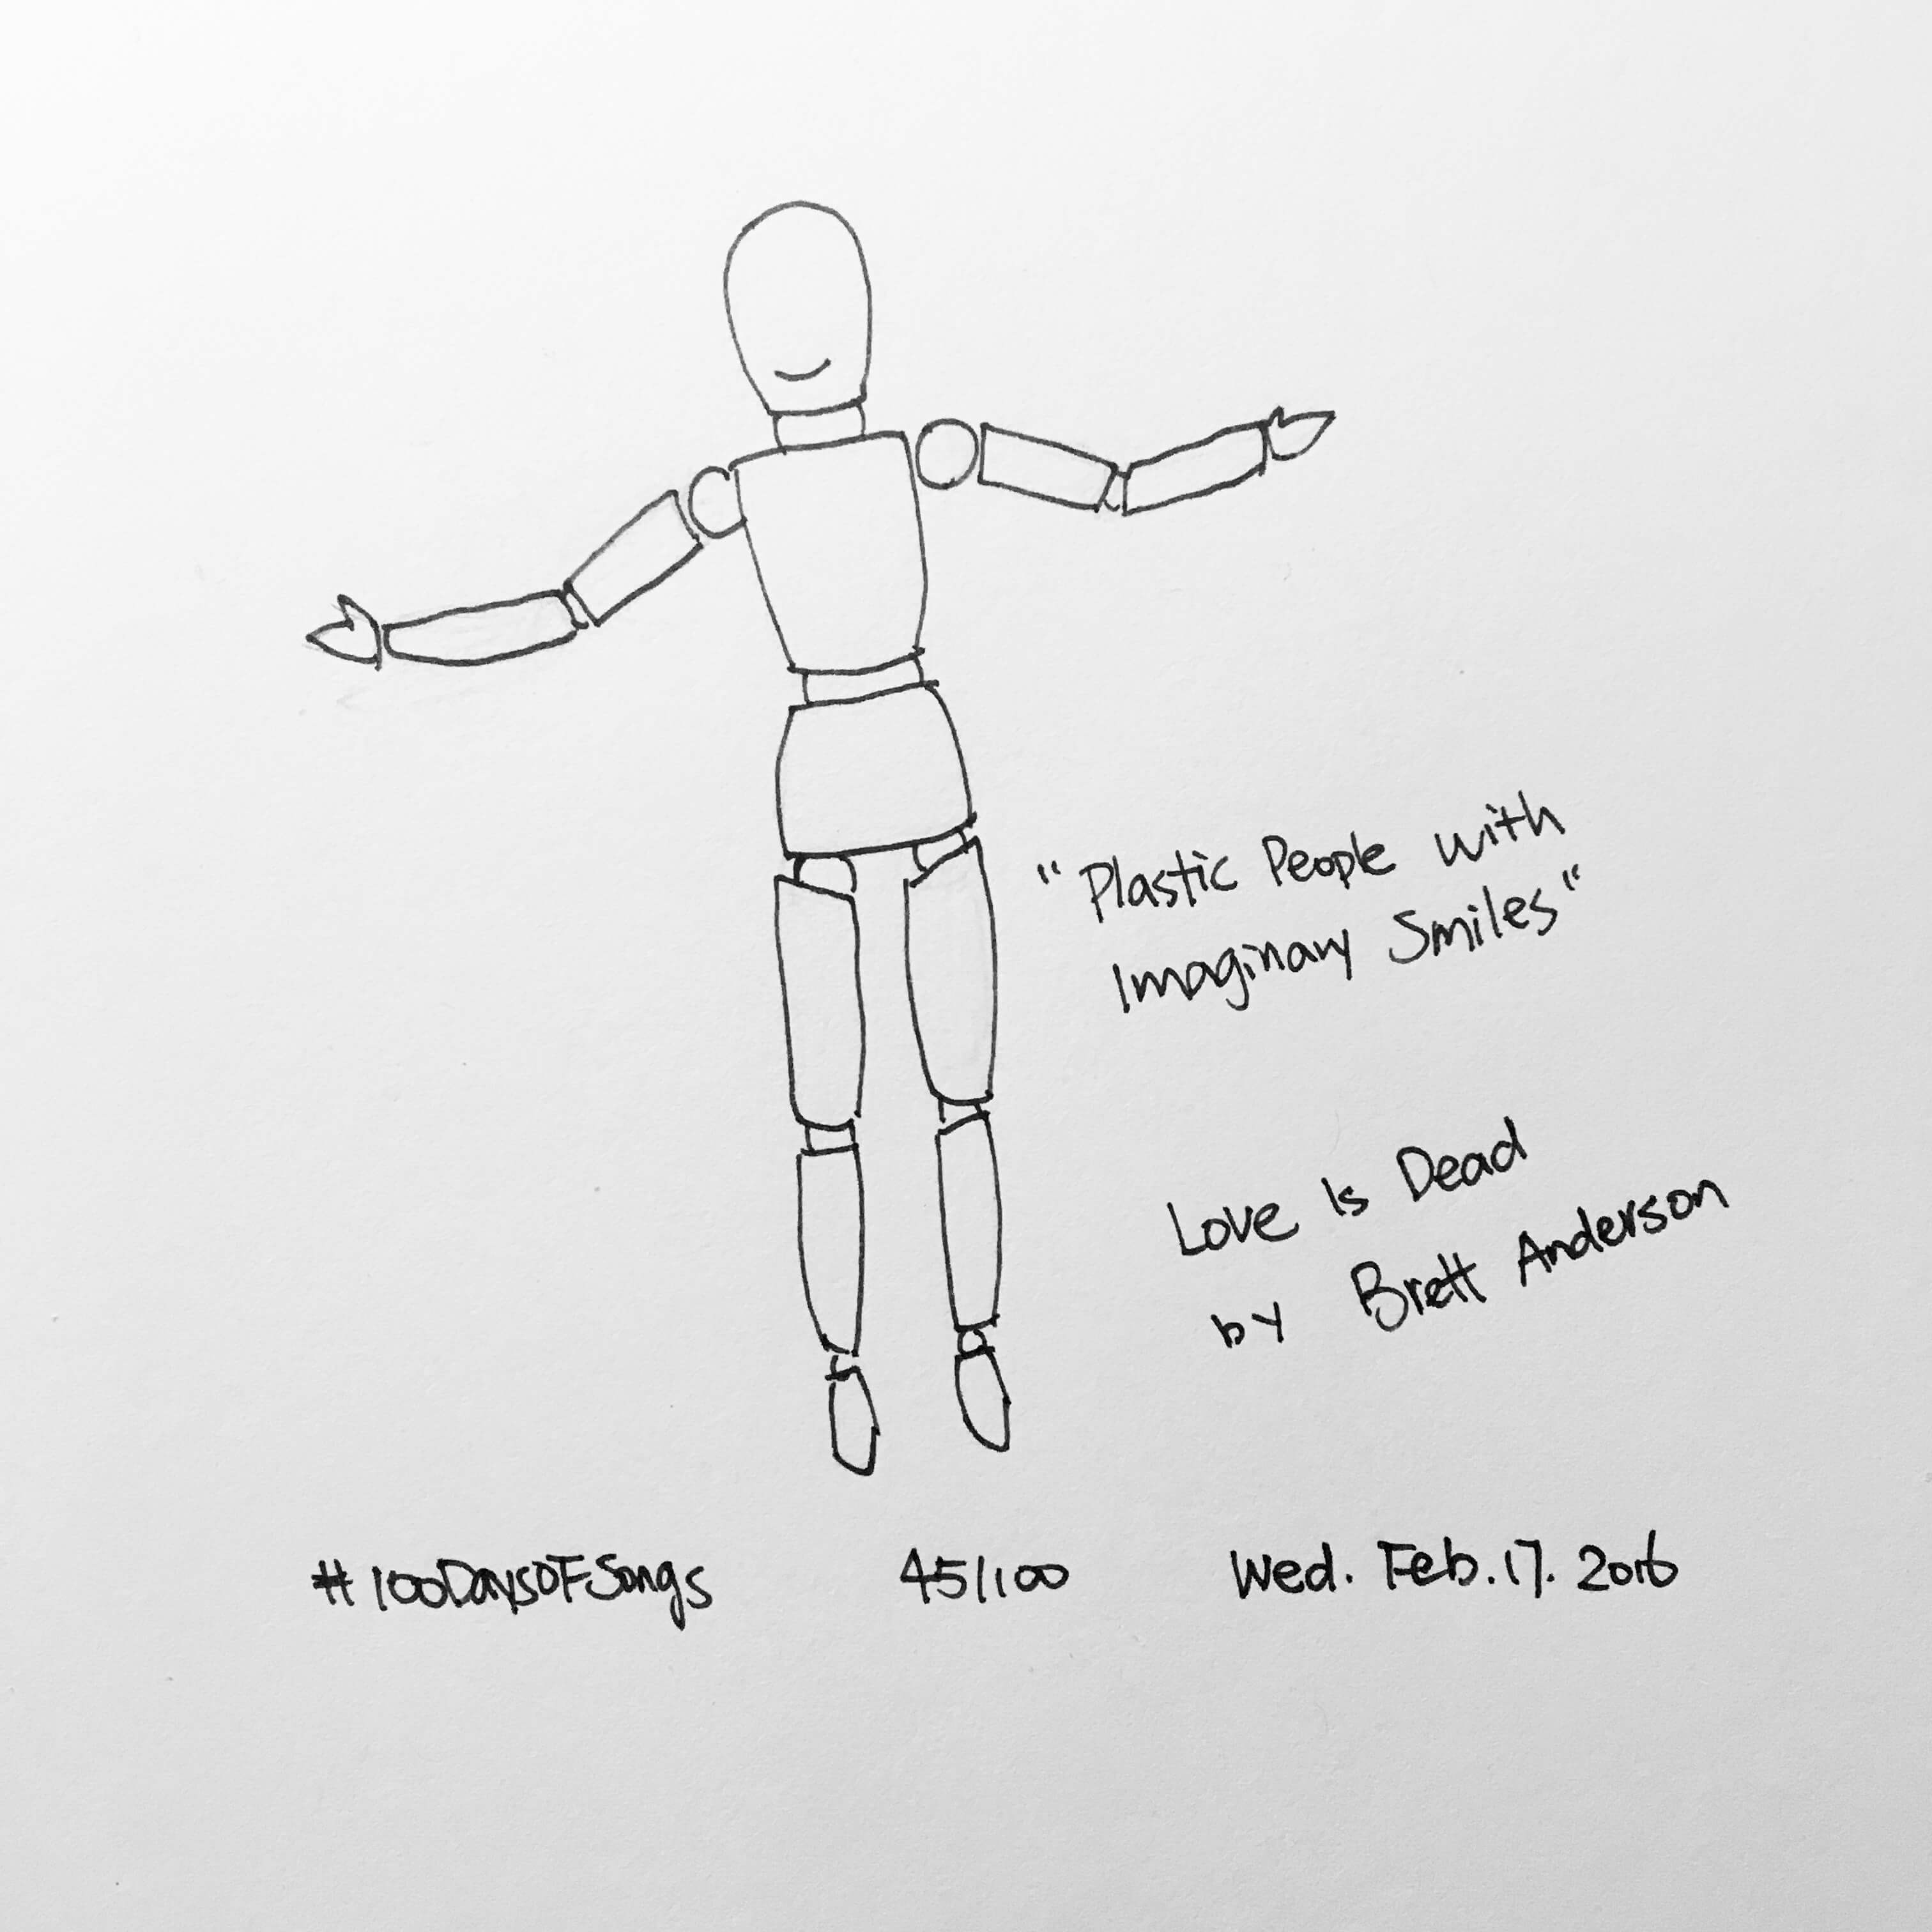 "Plastic People with
Imaginary Smiles"
Love Is Dead
by Brett Anderson
#100DaysOfSongs 45/100 Wed. Feb. 17. 2016